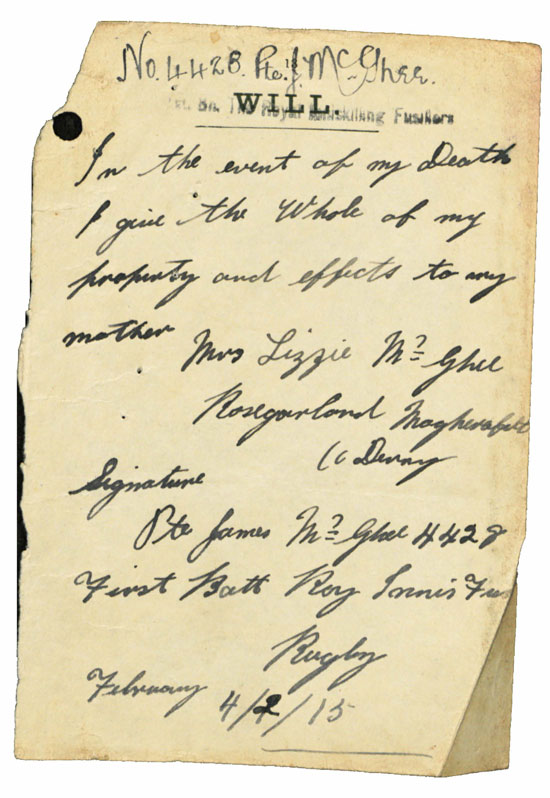 No. 4428. Pte. J. McGhee.
WILL.
1st. Bn. The Royal Inniskilling Fusiliers
In the event of my Death
I give the Whole of my
property and effects to my
mother
Mrs Lizzie Mc Ghee
Rosegarland Magherafelt
Co Derry
Signature
Pte James Mc Ghee 4428
First Batt Roy Innis Fus
Rugby
February 4/2/15